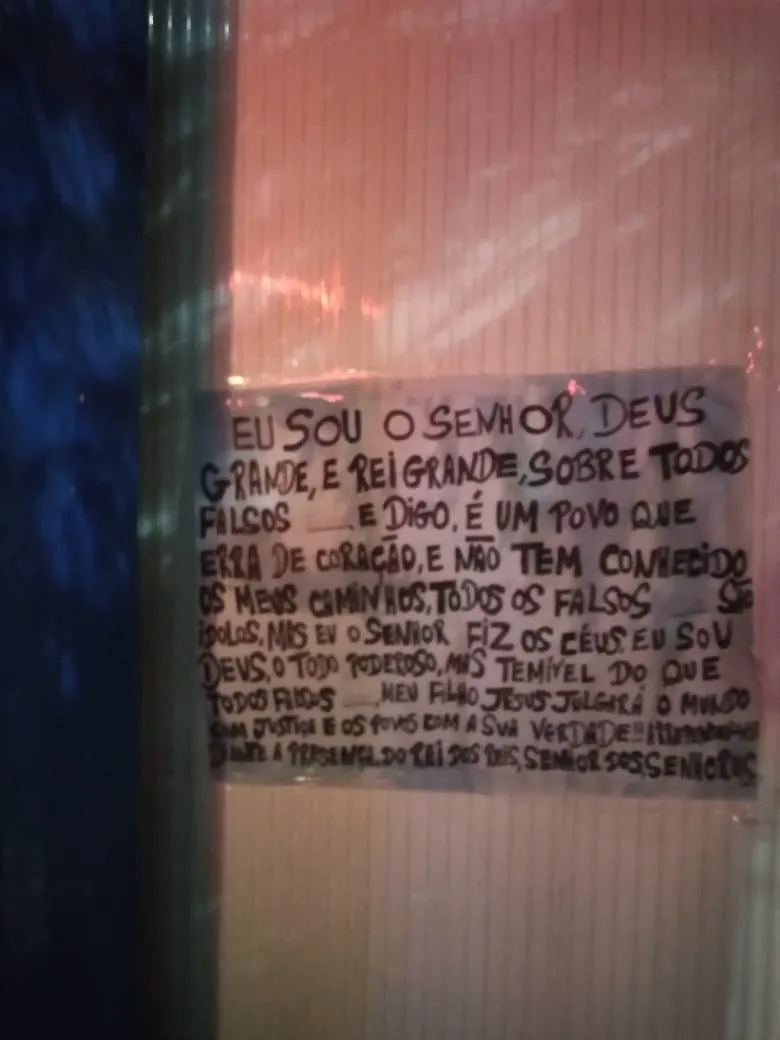 EU SOU O SENHOR, DEUS
GRANDE, E REI GRANDE, SOBRE TODOS
FALSOS ___ E DIGO, É UM POVO QUE
ERRA DE CORAÇÃO, E NÃO TEM CONHECIDO
OS MEUS CAMINHOS, TODOS OS FALSOS ___ SÃO
ÍDOLOS, MAS EU O SENHOR FIZ OS CÉUS, EU SOU
DEUS, O TODO PODEROSO, MAIS TEMÍVEL DO QUE
TODOS FALSOS ___, MEU FILHO JESUS JULGARÁ O MUNDO
COM JUSTIÇA E OS POVOS COM A SUA VERDADE!!
DIANTE A PRESENÇA DO REI DOS REIS, SENHOR DOS SENHORES